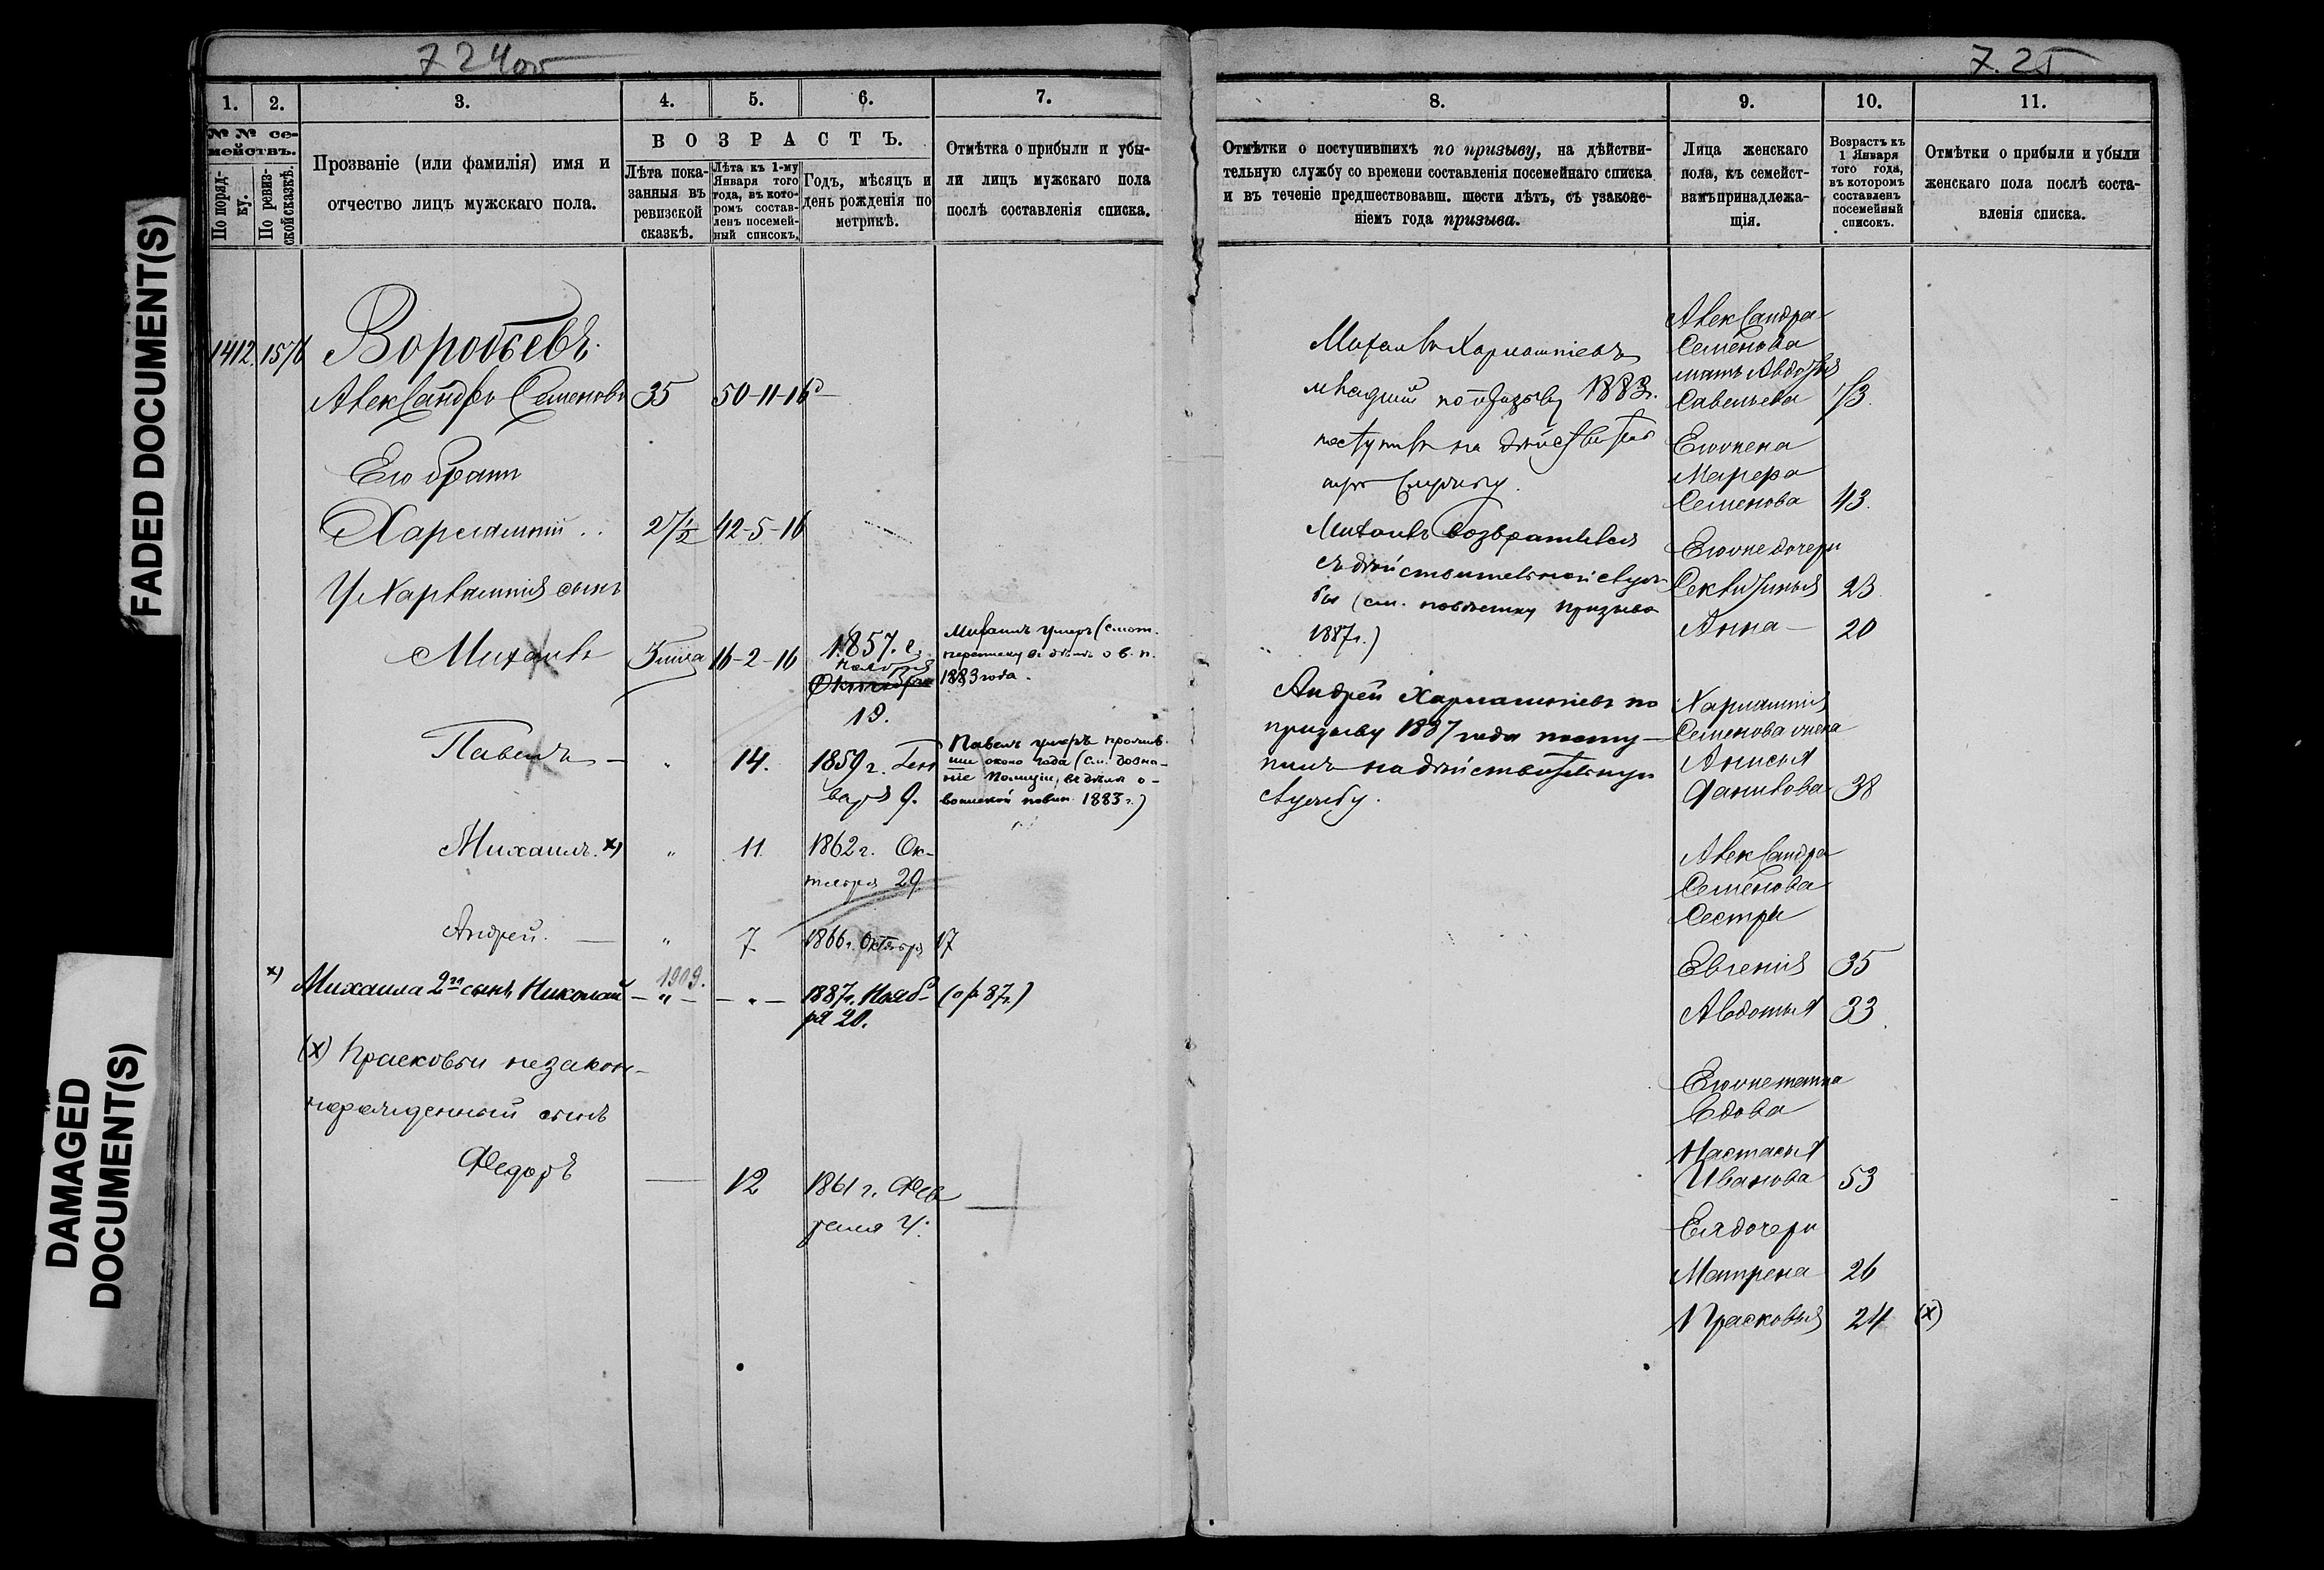 724об
7.25
FADED DOCUMENT(S)
DAMAGED
DOCUMENT(S)
1.
2.
3.
4.
5.
6.
7.
№ № се-
мействъ.
По поряд-
ку.
По ревиз-
ской сказкѣ.
Прозваніе (или фамилія) имя и
отчество лицъ мужскаго пола.
ВОЗРАСТЪ.
Лѣта пока-
занныя въ
ревизской
сказкѣ.
Лѣта къ 1-му
Января того
года, въ кото-
ромъ состав-
ленъ посемей-
ный списокъ.
Годъ, мѣсяцъ и
день рожденія по
метрикѣ.
Отмѣтка о прибыли и убы-
ли лицъ мужскаго пола
послѣ составленія списка.
1412. 1576 Воробьевъ.
Александръ Семеновъ 35 50-11-16
Его братъ
Харлампій 27½ 42-5-16
У Харлампія сынъ
Михаилъ 16-2-16 1857. г.
Ноября
Октября
19.
Михаилъ умеръ (смот.
переписку въ дѣлѣ о в. п.
1883 года.
Павелъ — " 14. 1859 г. Ген
варя 9.
Павелъ умеръ
около года (см. дозна-
ніе Полиціи, въ дѣлѣ о
воинской повин. 1883 г.)
Михаилъ. х) " 11 1862 г. Ок-
тября 29
Андрей. — " 7 1866 г. Октября 17
1909.
х) Михаила 2го сынъ Николай — " — — " — 1887 г. Нояб-
ря 20.
(х) Прасковьи незакон-
норожденный сынъ
Федоръ — 12 1861 г. Фев
раля 4.
8.
9.
10.
11.
Отмѣтки о поступившихъ по призыву, на дѣйстви-
тельную службу со времени составленія посемейнаго списка
и въ теченіе предшествовавш. шести лѣтъ, съ узаконе-
ніемъ года призыва.
Лица женскаго
пола, къ семейст-
вамъ принадлежа-
щія.
Возрастъ къ
1 Января
того года,
въ которомъ
составленъ
посемейный
списокъ.
Отмѣтки о прибыли и убыли
женскаго пола послѣ соста-
вленія списка.
Михаилъ Харлампіевъ
младшій по призыву 1883 г.
поступилъ на дѣйствитель
ную службу.
Михаилъ возвратился
съ дѣйствительной служ-
бы (см. повѣстку призыва
1887 г.)
Андрей Харлампіевъ по
призыву 1887 года посту-
пилъ на дѣйствительную
службу.
Александра
Семенова
мать Авдотья
Савельева 73.
Его жена
Марфа
Семенова 43.
Его же дочери
23.
Анна — 20
Харлампія
Семенова жена
Анисья
Данилова 38
Александра
Семенова
Сестры
Евгенія 35
Авдотья 33
Его же тетка
Вдова
Настасья
Иванова 53
Ея дочери
Матрена 26
Прасковья 24 (х)